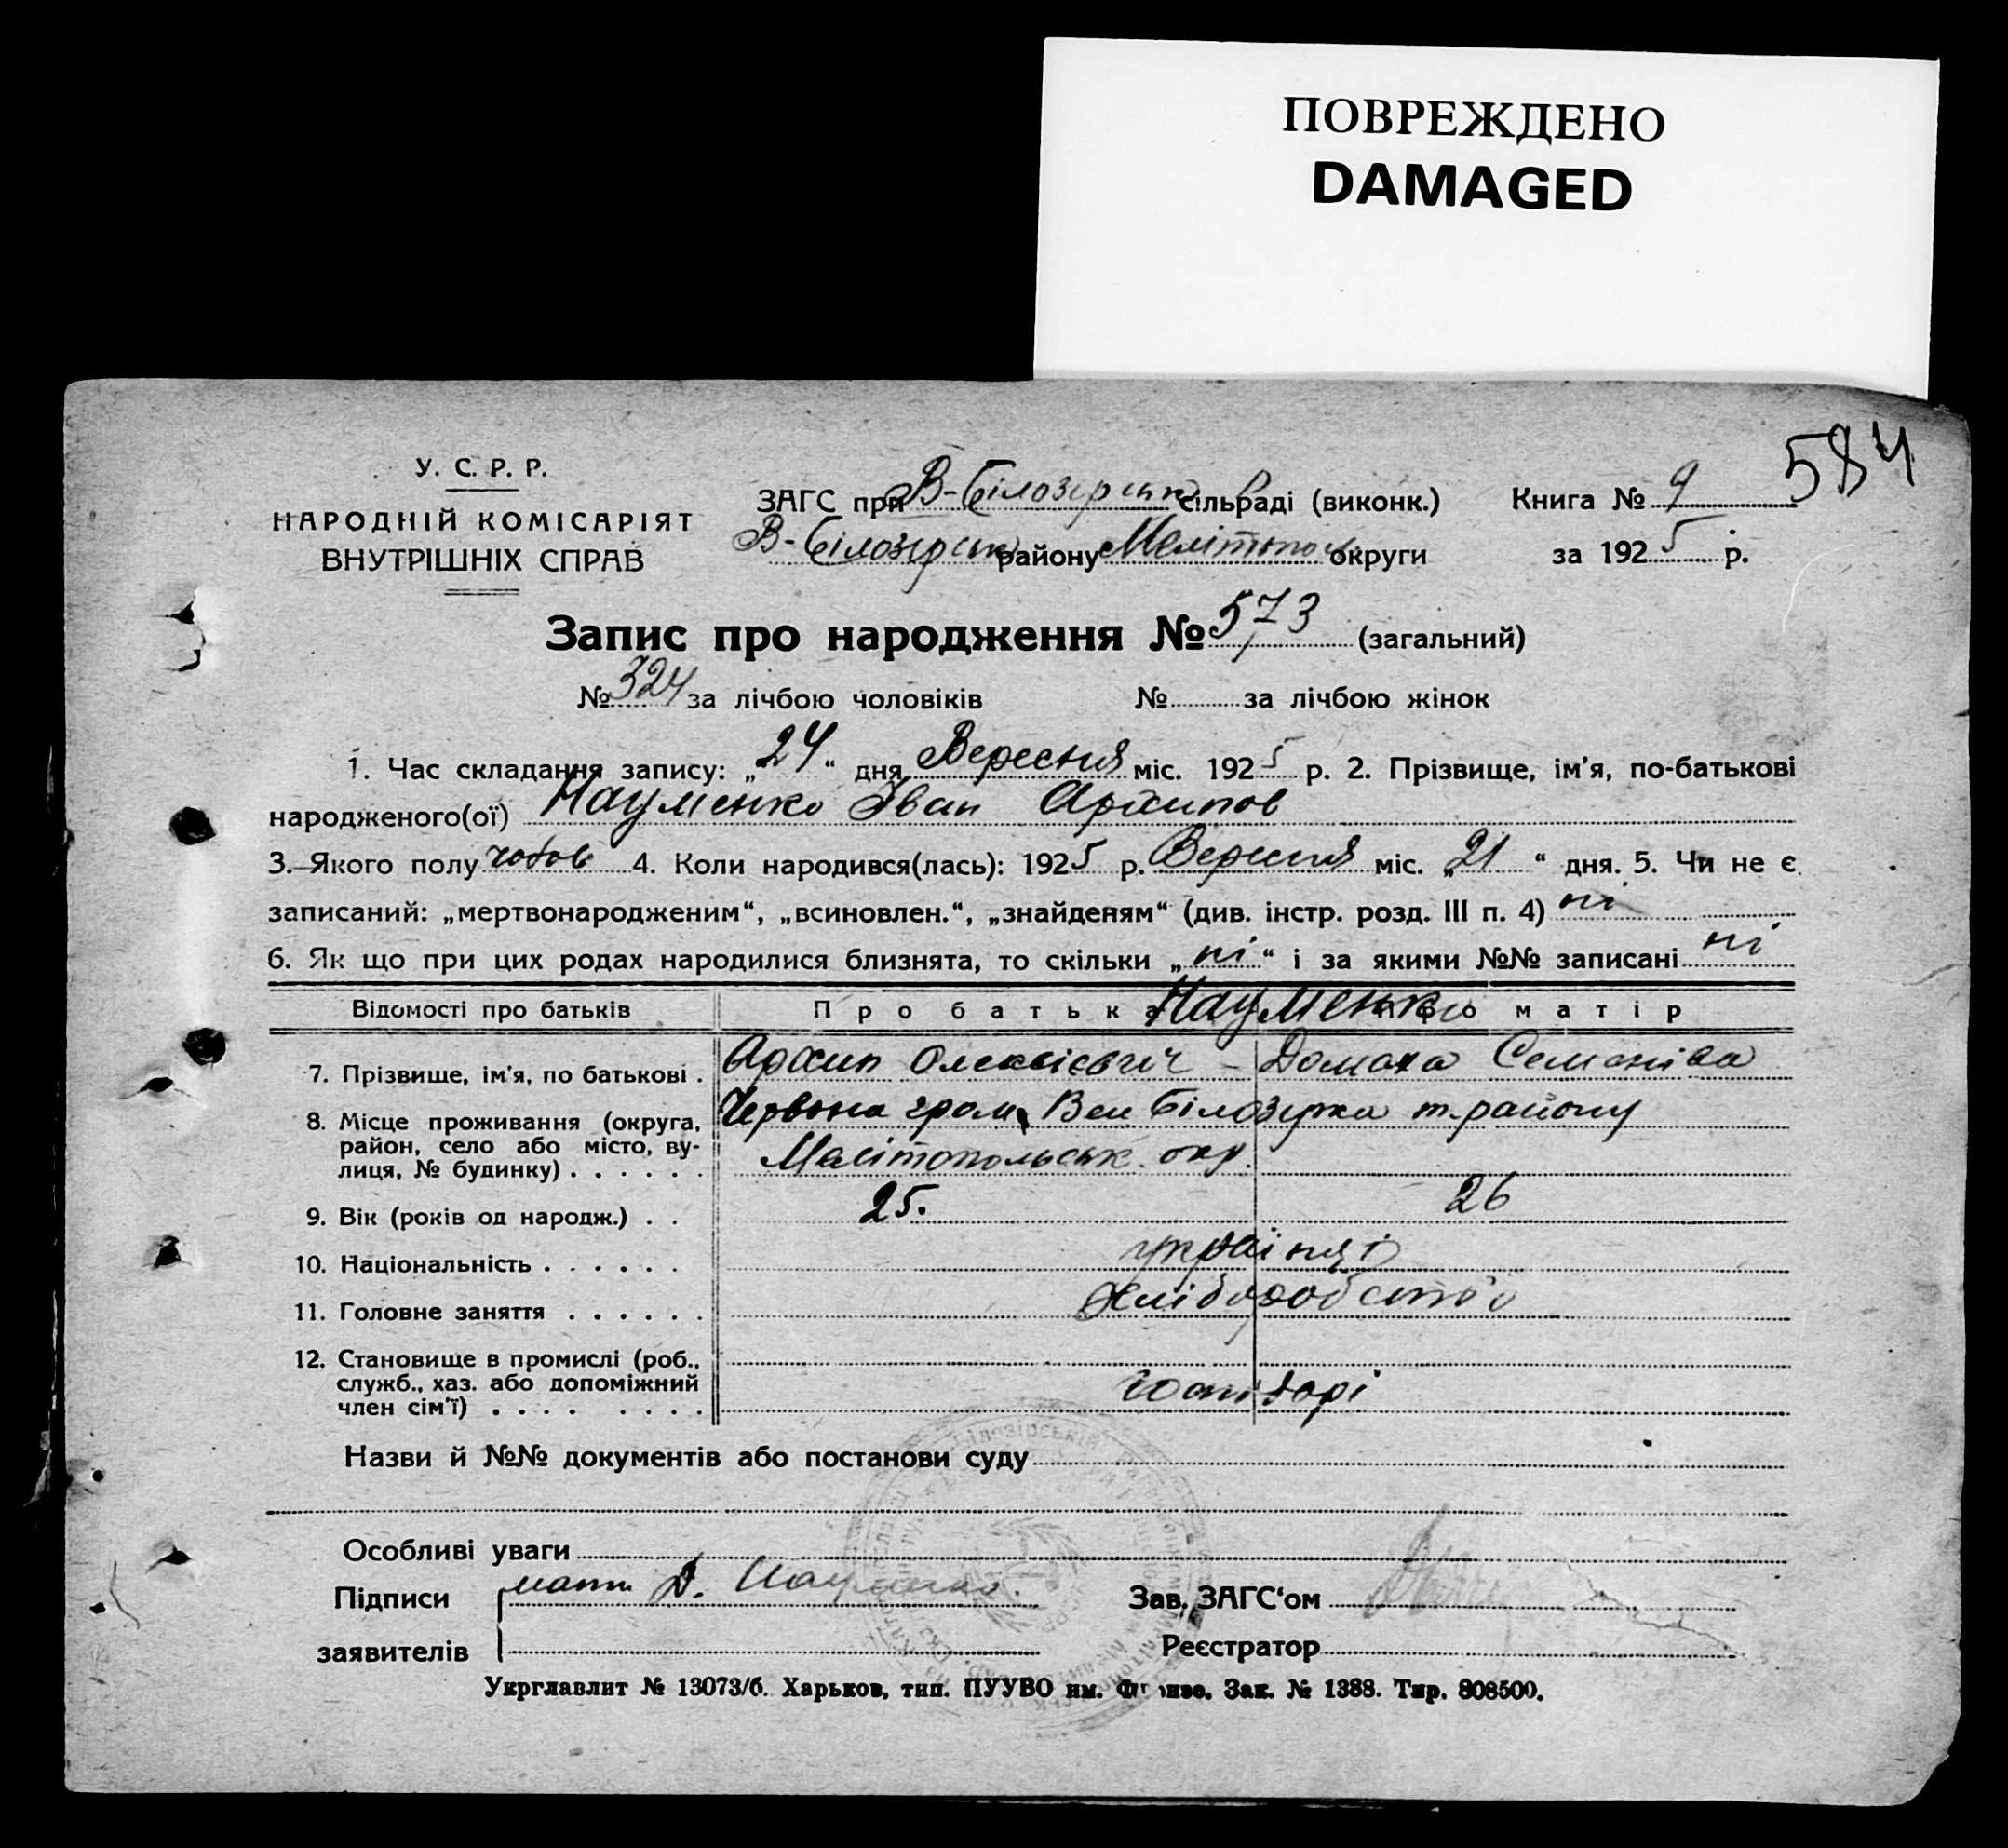 ПОВРЕЖДЕНО
DAMAGED
584
У. С. Р. Р.
НАРОДНІЙ КОМІСАРІЯТ
ВНУТРІШНІХ СПРАВ
ЗАГС при В-Білозірськ сільраді (виконк.) Книга № 9
В-Білозірськ району Мелітопол округи за 1925 р.
Запис про народження № 573 (загальний)
№ 324 за лічбою чоловіків № за лічбою жінок
1. Час складання запису: „24“ дня Вересня міс. 1925 р. 2. Прізвище, ім'я, по-батькові
народженого(ої) Науменко Іван Архипов
3. Якого полу чолов 4. Коли народився(лась): 1925 р. Вересня міс. „21“ дня. 5. Чи не є
записаний: „мертвонародженим“, „всиновлен.“, „знайденям“ (див. інстр. розд. III п. 4) ні
6. Як що при цих родах народилися близнята, то скільки „ні“ і за якими №№ записані ні
Відомості про батьків Про батька Науменко матір
7. Прізвище, ім'я, по батькові . Архип Олексієвич - Домаха Семенівна
8. Місце проживання (округа, Червона гром. Вел Білозірка т.району
район, село або місто, ву-
лиця, № будинку) . . . . . . Мелітопольськ. окр.
9. Вік (років од народж.) . . 25. 26
10. Національність . . . . . . українці
11. Головне заняття . . . . . . Хліборобство
12. Становище в промислі (роб.,
служб., хаз. або допоміжний
член сім'ї) . . . . . . . . господарі
Назви й №№ документів або постанови суду
Особливі уваги
Підписи мати Д. Науменко. Зав. ЗАГС‘ом
заявителів Реєстратор
Укрглавлит № 13073/б. Харьков, тип. ПУУВО им. Фрунзе. Зак. № 1388. Тир. 808500.